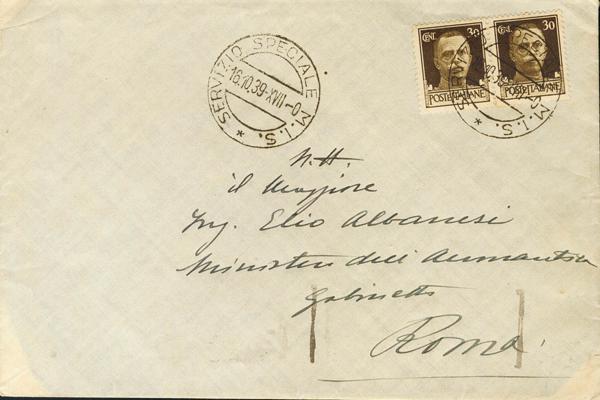 SERVIZIO SPECIALE M.I.S. *
16.10.39-XVII-0
CENT. 30
POSTE ITALIANE
CENT. 30
POSTE ITALIANE
N.H.
il Maggiore
Ing. Elio Albanesi
Ministero dell'Aeronautica
Gabinetto
Roma